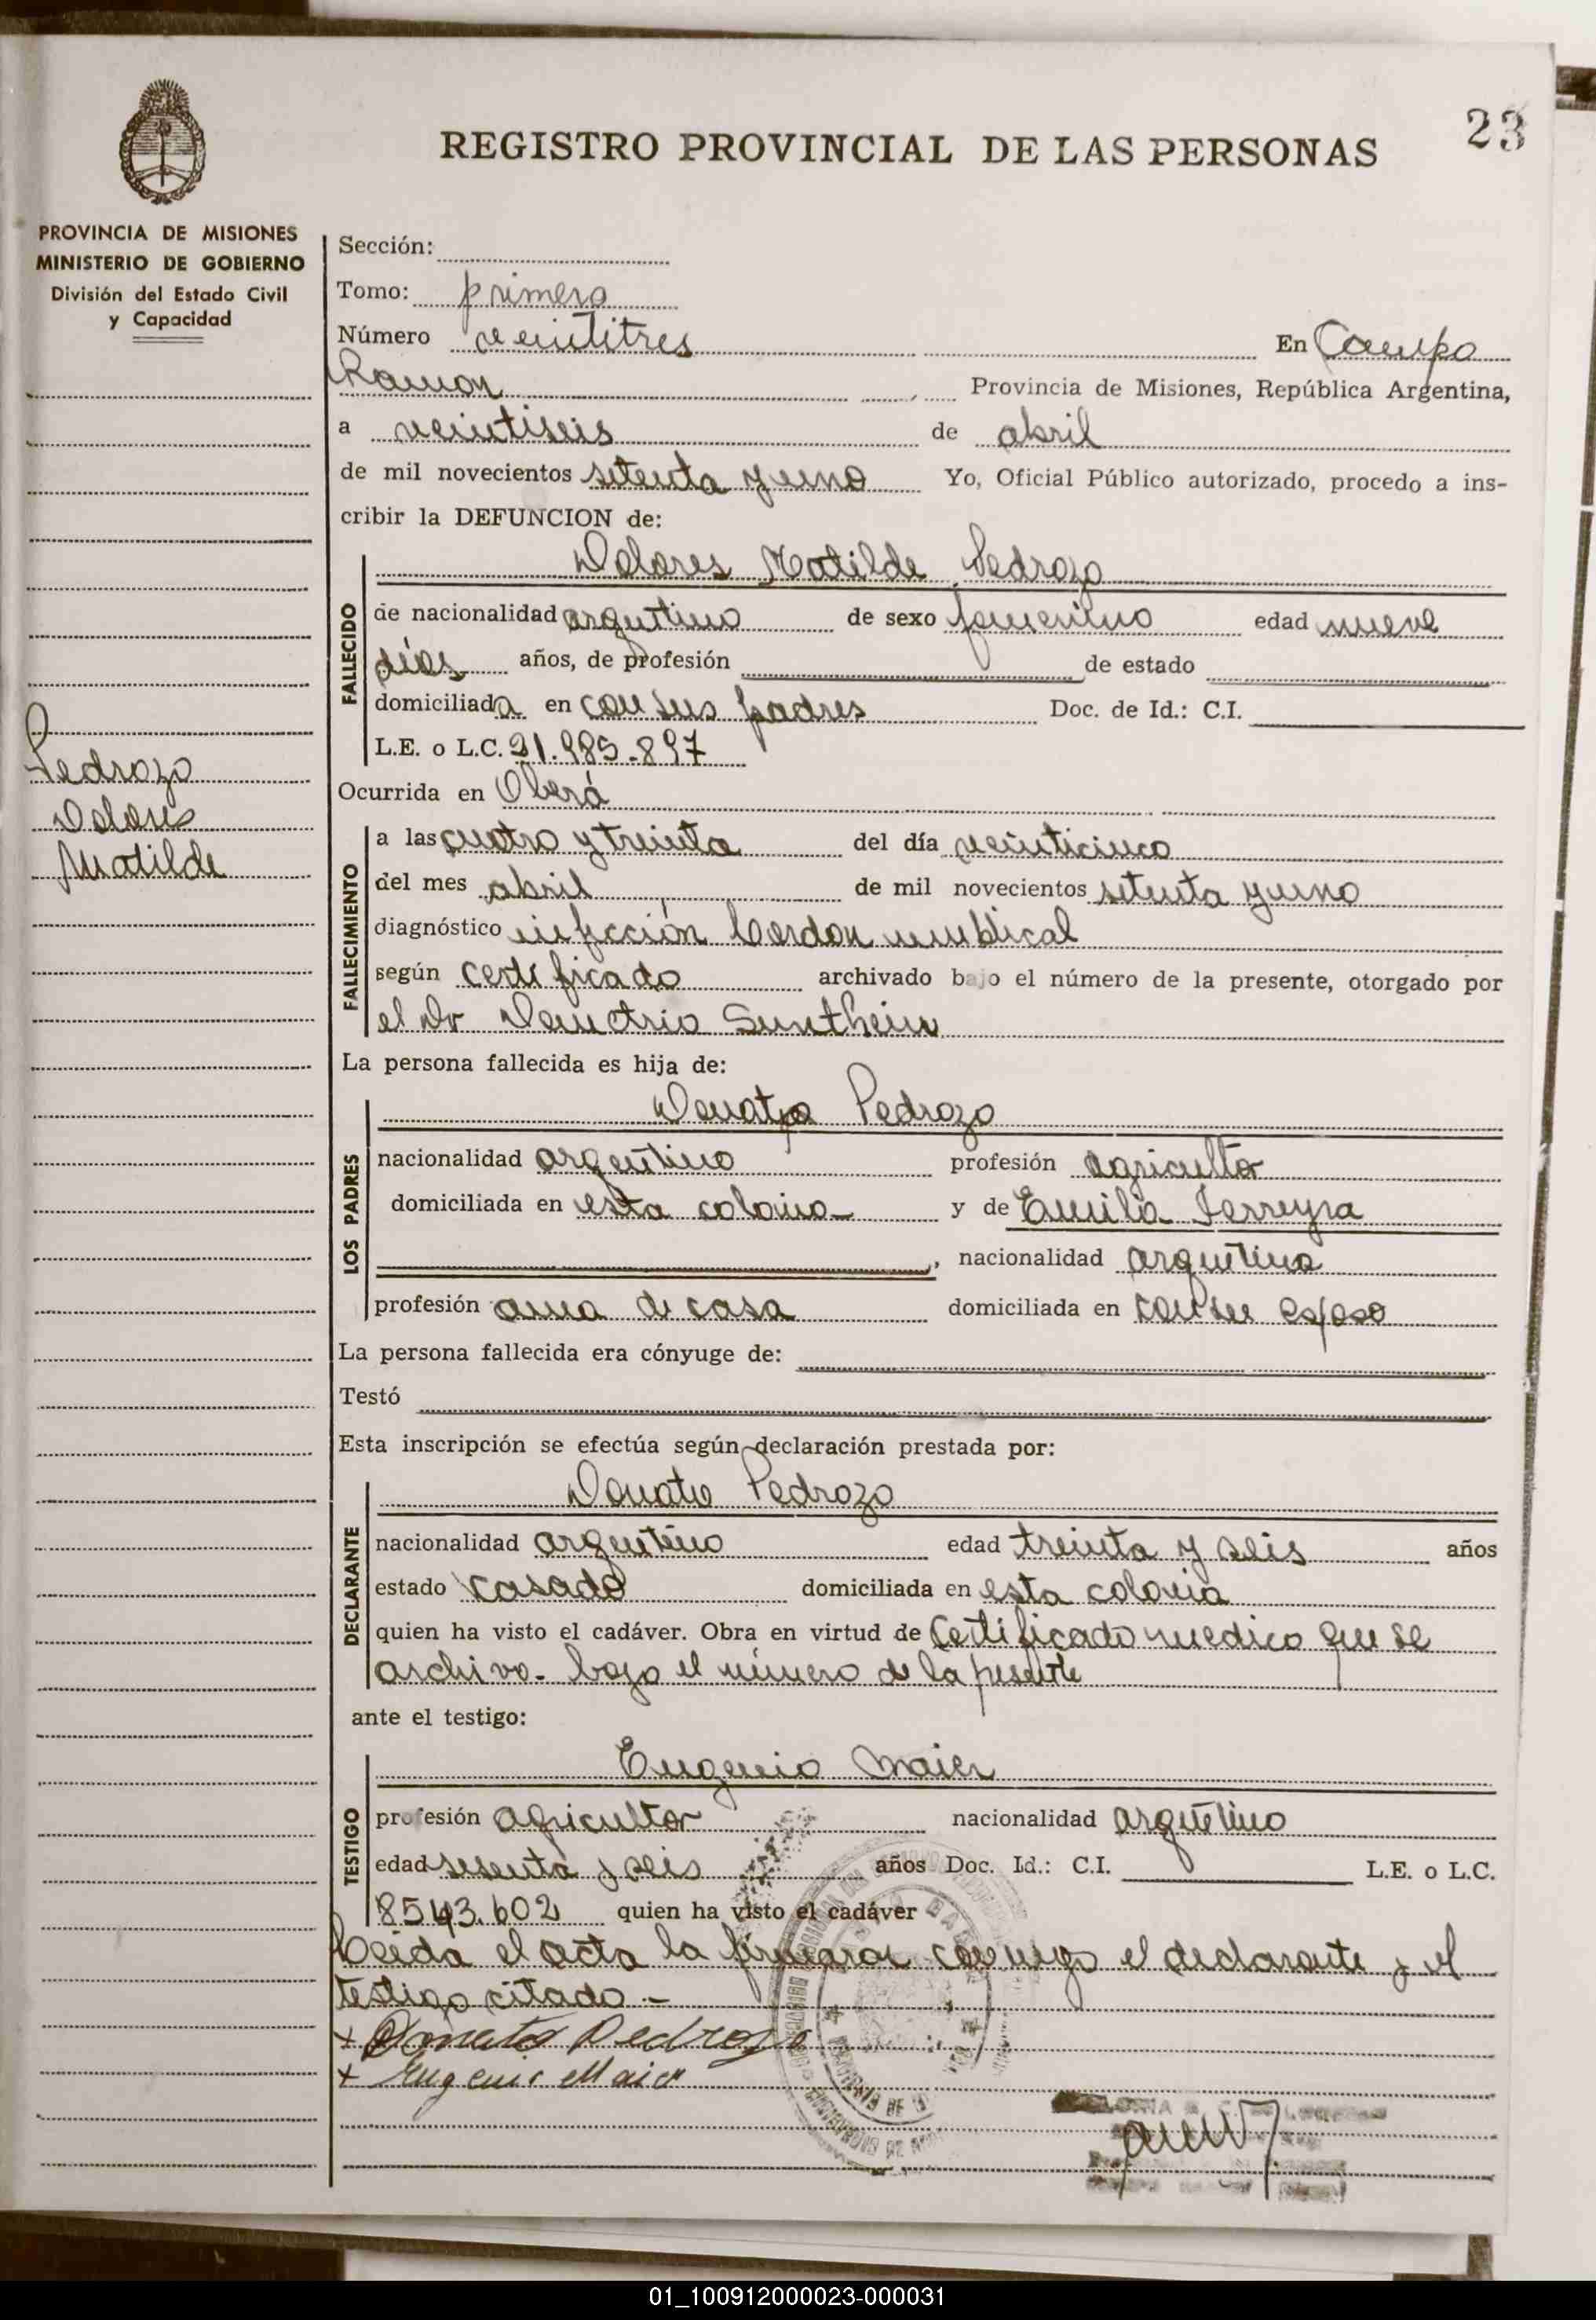 23
REGISTRO PROVINCIAL DE LAS PERSONAS
PROVINCIA DE MISIONES
MINISTERIO DE GOBIERNO
División del Estado Civil
y Capacidad
Pedrozo
Dolores
Matilde
Sección:
Tomo: primero
Número veintitres En Campo
Ramon Provincia de Misiones, República Argentina,
a veintiseis de abril
de mil novecientos setenta y uno Yo, Oficial Público autorizado, procedo a ins-
cribir la DEFUNCION de:
FALLECIDO
Dolores Matilde Pedrozo
de nacionalidad argentino de sexo femenino edad nueve
días años, de profesión de estado
domiciliada en con sus padres Doc. de Id.: C.I.
L.E. o L.C. 21.985.897
Ocurrida en Oberá
FALLECIMIENTO
a las cuatro y treinta del día veinticinco
del mes abril de mil novecientos setenta y uno
diagnóstico infección Cordon umblical
según certificado archivado bajo el número de la presente, otorgado por
el Dr Demetrio Sunthein
La persona fallecida es hija de:
LOS PADRES
Donato Pedrozo
nacionalidad argentino profesión agricultor
domiciliada en esta colonia y de Emilia Ferreyra
, nacionalidad argentina
profesión ama de casa domiciliada en con su esposo
La persona fallecida era cónyuge de:
Testó
Esta inscripción se efectúa según declaración prestada por:
DECLARANTE
Donato Pedrozo
nacionalidad argentino edad treinta y seis años
estado casado domiciliada en esta colonia
quien ha visto el cadáver. Obra en virtud de Certificado medico que se
archivo- bajo el número de la presente
ante el testigo:
TESTIGO
Eugenio Maier
profesión agricultor nacionalidad argentino
edad sesenta y seis años Doc. Id.: C.I. L.E. o L.C.
8543.602 quien ha visto el cadáver
Leida el acta la firmaron conmigo el declarante y el
testigo citado -
+ Donato Pedrozo
+ Eugenio Maier
01_100912000023-000031